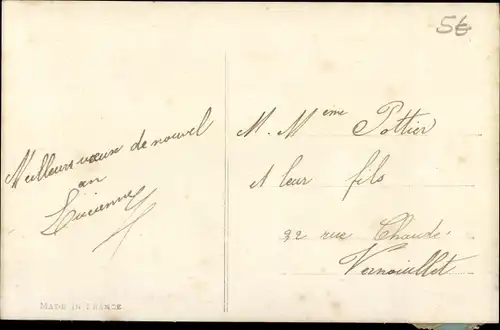 5€
Meilleurs vœux de nouvel
an
Lucienne
M. Mème Pottier
et leur fils
22 rue Chaude
Vernouillet
MADE IN FRANCE